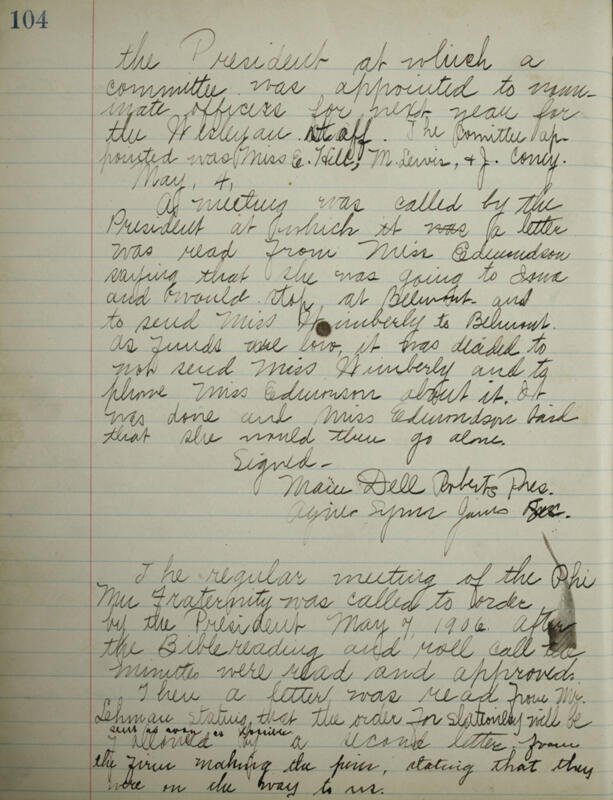 104
the President at which a
committee was appointed to nom-
inate officers for next year for
the Wesleyan Staff. The Comittee ap-
pointed was Miss E. Hill, M. Lewis, & J. Coney.
May, 4,
A meeting was called by the
President at which it was a letter
was read from Miss Edmondson
saying that she was going to Iowa
and would stop at Belmont and
to send Miss Wimberly to Belmont.
As funds were low, it was decided to
not send Miss Wimberly and to
phone Miss Edmonson about it. It
was done and Miss Edmondson said
that she would then go alone.
Signed -
Dell Roberts Pres.
Agnes James Sec.
The regular meeting of the Phi
Mu Fraternity was called to order
by the President May 7, 1906. After
the Bible reading and roll call the
minutes were read and approved.
Then a letter was read from Mr.
Lehman stating that the order for stationery will be
sent as soon as
followed by a second letter from
the firm making the pins, stating that they
were on the way to us.